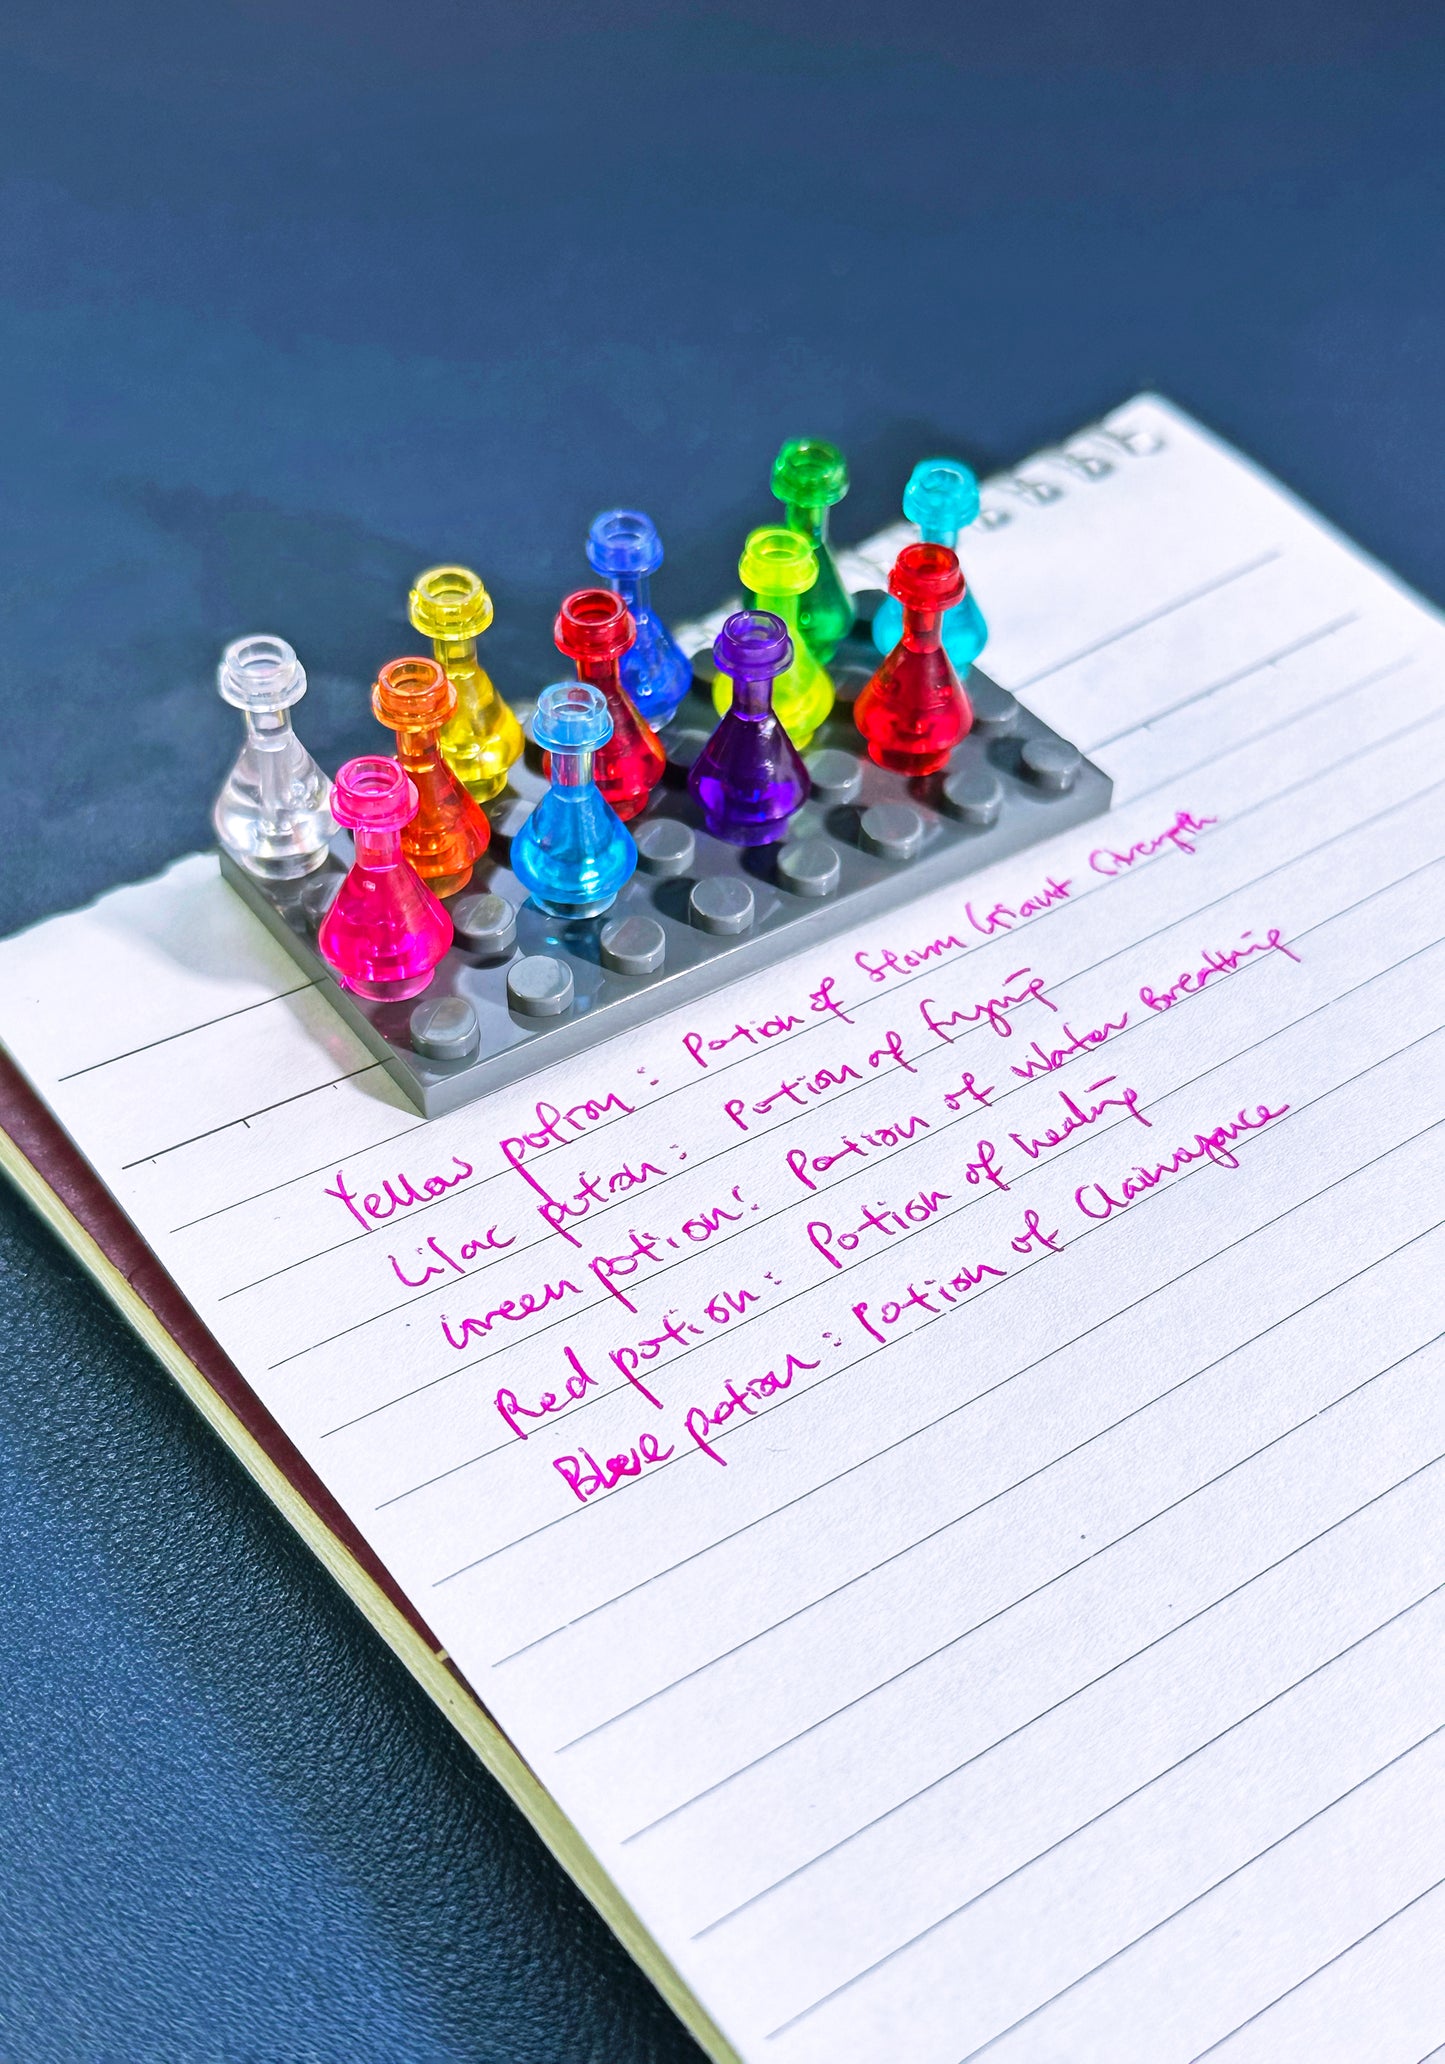 Yellow potion: Potion of Storm Giant Strength
Lilac potion: potion of Flying
Green potion: Potion of Water Breathing
Red potion: Potion of healing
Blue potion: Potion of Clairvoyance